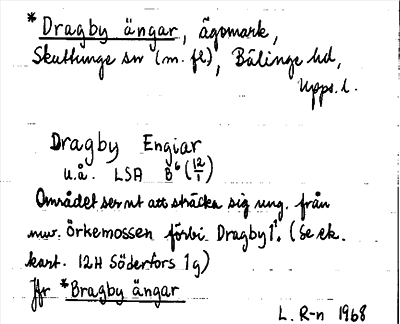 *Dragby ängar, ägomark,
Skuttunge sn (m. fl), Bälinge hd,
Upps. l.
Dragby Engiar
u.å. LSA B⁶ (12/1)
Området ser ut att sträcka sig ung. från
nuv. Örkemossen förbi Dragby 1¹. (Se ek.
kart. 12H Söderfors 1g)
Jfr *Bragby ängar
L. R-n 1968